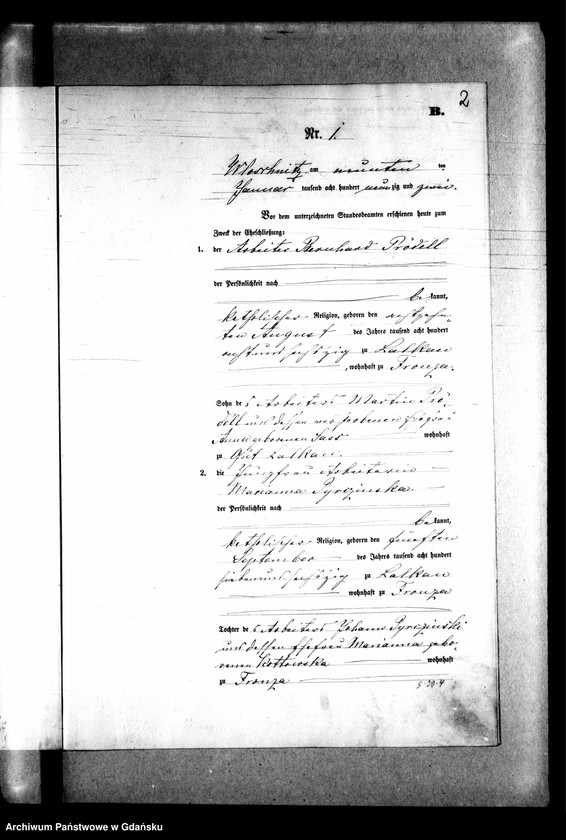 2
B.
Nr. 1.
Wloschnitz am neunten ten
Januar tausend acht hundert neunzig und zwei.
Vor dem unterzeichneten Standesbeamten erschienen heute zum
Zweck der Eheschließung:
1. der Arbeiter Bernhard Prödell
der Persönlichkeit nach
bekannt,
katholischer Religion, geboren den achtzehn-
ten August des Jahrs tausend acht hundert
achtundsechszig zu Lalkau
, wohnhaft zu Fronza.
Sohn des Arbeiters Martin Prö-
dell und dessen verstorbenen Ehefrau
Anna geborenen Sass wohnhaft
zu Gut Lalkau.
2. die Jungfrau Arbeiterin
Marianna Pyrczinska.
der Persönlichkeit nach
bekannt,
katholischer Religion, geboren den fünften
September des Jahrs tausend acht hundert
siebenundsechszig zu Lalkau
wohnhaft zu Fronza
Tochter des Arbeiters Johann Pyrczinski
und dessen Ehefrau Marianna gebo-
renen Kottowska wohnhaft
zu Fronza
Archiwum Państwowe w Gdańsku